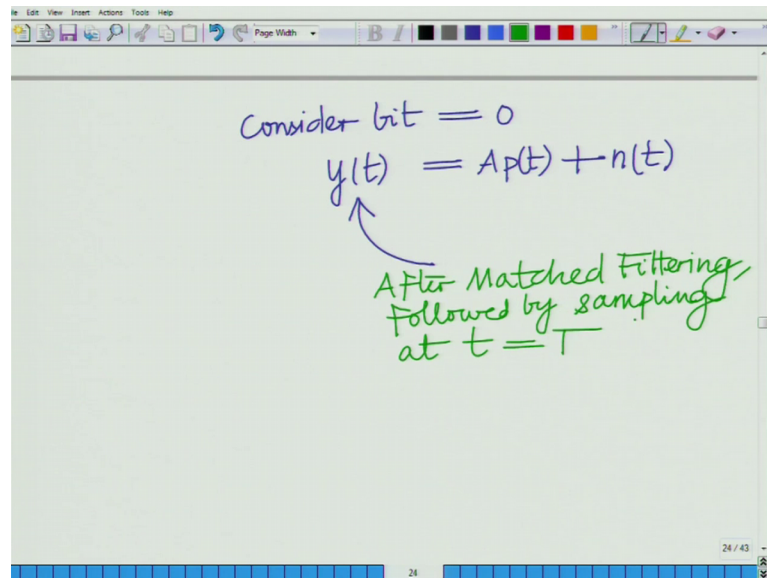 le Edit View Insert Actions Tools Help
Page Width
B I
Consider bit = 0
y(t) = Ap(t) + n(t)
After Matched Filtering,
Followed by sampling
at t = T
24 / 43
24